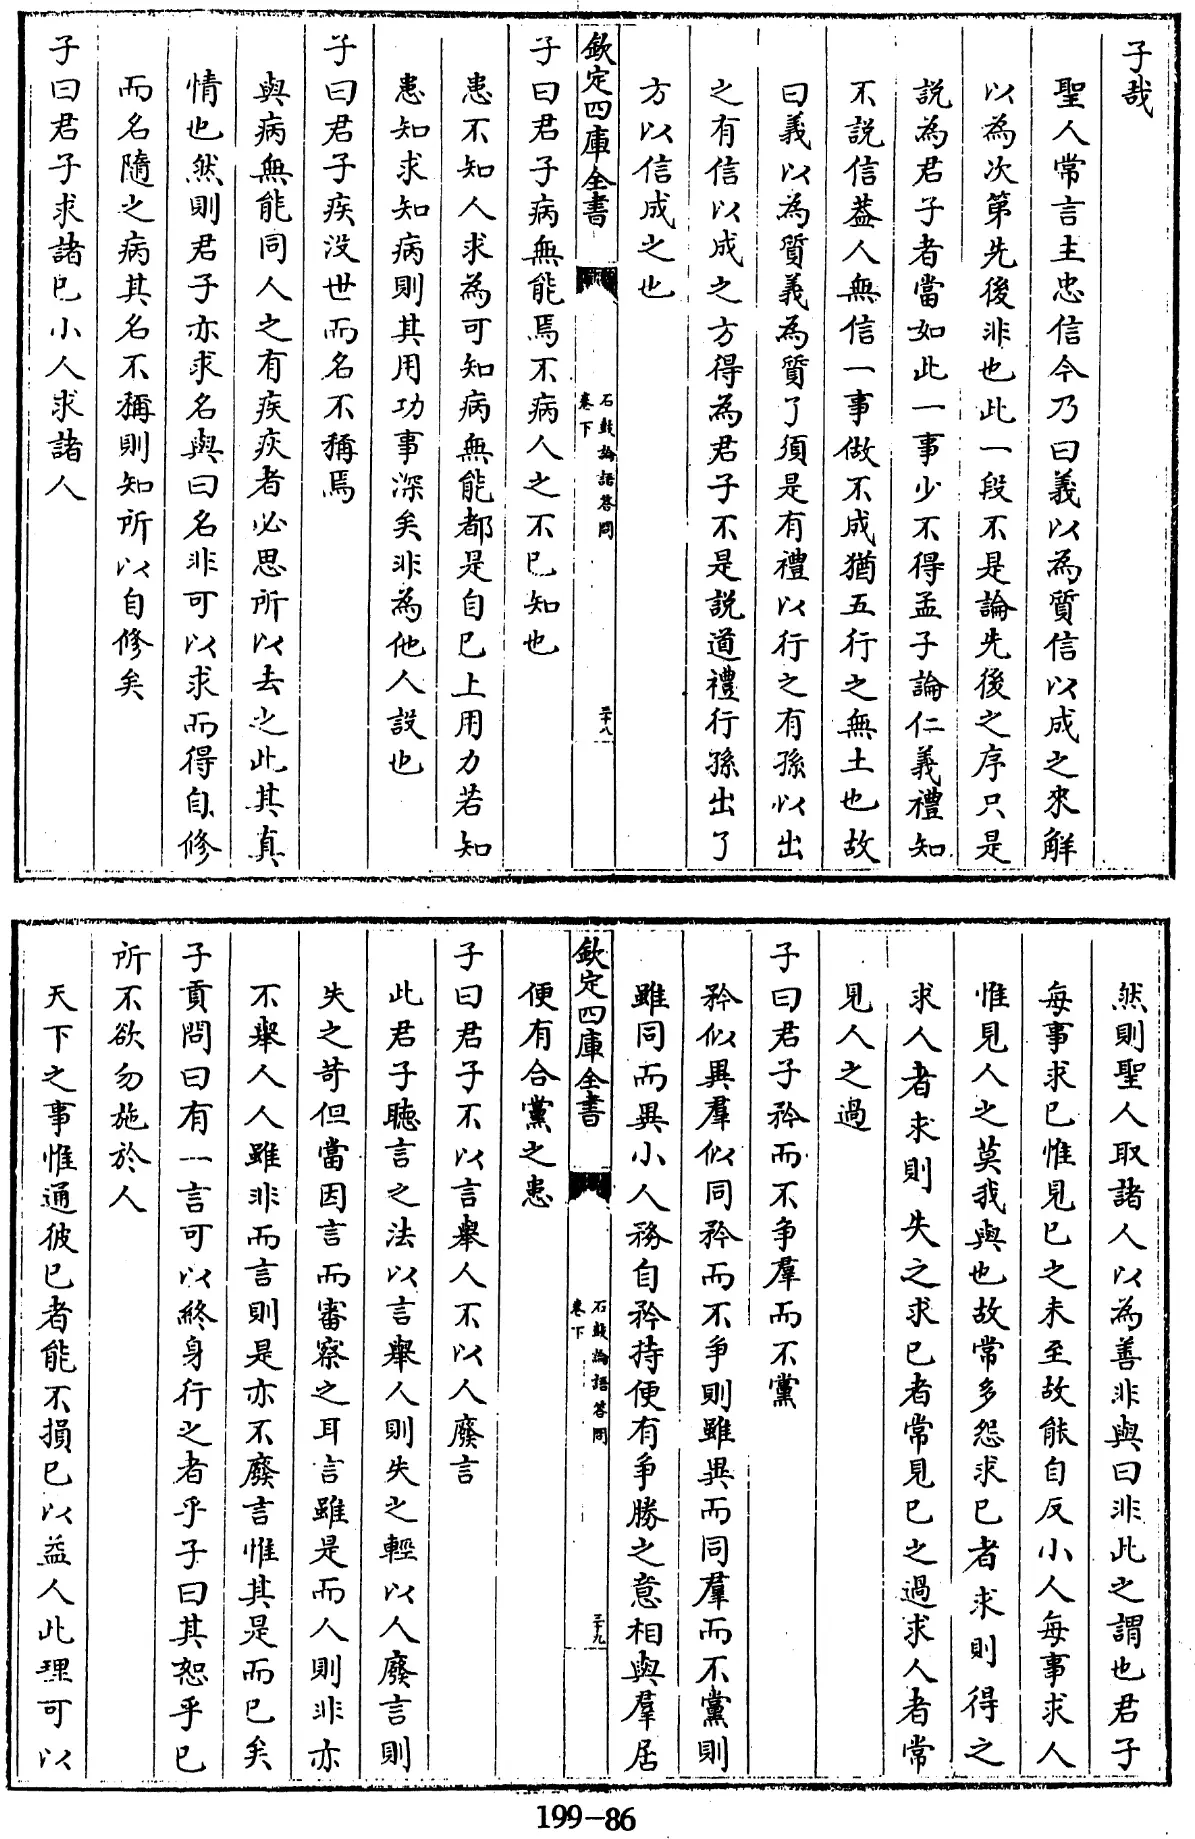 子哉
聖人常言主忠信今乃曰義以為質信以成之來解
以為次第先後非也此一段不是論先後之序只是
說為君子者當如此一事少不得孟子論仁義禮知
不說信葢人無信一事做不成猶五行之無土也故
曰義以為質義為質了須是有禮以行之有孫以出
之有信以成之方得為君子不是說道禮行孫出了
方以信成之也
欽定四庫全書
石鼓論語答問
卷下
三十八
子曰君子病無能焉不病人之不已知也
患不知人求為可知病無能都是自已上用力若知
患知求知病則其用功事深矣非為他人設也
子曰君子疾没世而名不稱焉
與病無能同人之有疾疾者必思所以去之此其真
情也然則君子亦求名與曰名非可以求而得自修
而名隨之病其名不稱則知所以自修矣
子曰君子求諸已小人求諸人
然則聖人取諸人以為善非與曰非此之謂也君子
每事求已惟見已之未至故能自反小人每事求人
惟見人之莫我與也故常多怨求已者求則得之
求人者求則失之求已者常見已之過求人者常
見人之過
子曰君子矜而不争羣而不黨
矜似異羣似同矜而不爭則雖異而同羣而不黨則
雖同而異小人務自矜持便有爭勝之意相與羣居
欽定四庫全書
石鼓論語答問
卷下
三十九
便有合黨之患
子曰君子不以言舉人不以人廢言
此君子聽言之法以言舉人則失之輕以人廢言則
失之苛但當因言而審察之耳言雖是而人則非亦
不舉人人雖非而言則是亦不廢言惟其是而已矣
子貢問曰有一言可以終身行之者乎子曰其恕乎已
所不欲勿施於人
天下之事惟通彼已者能不損已以益人此理可以
199-86